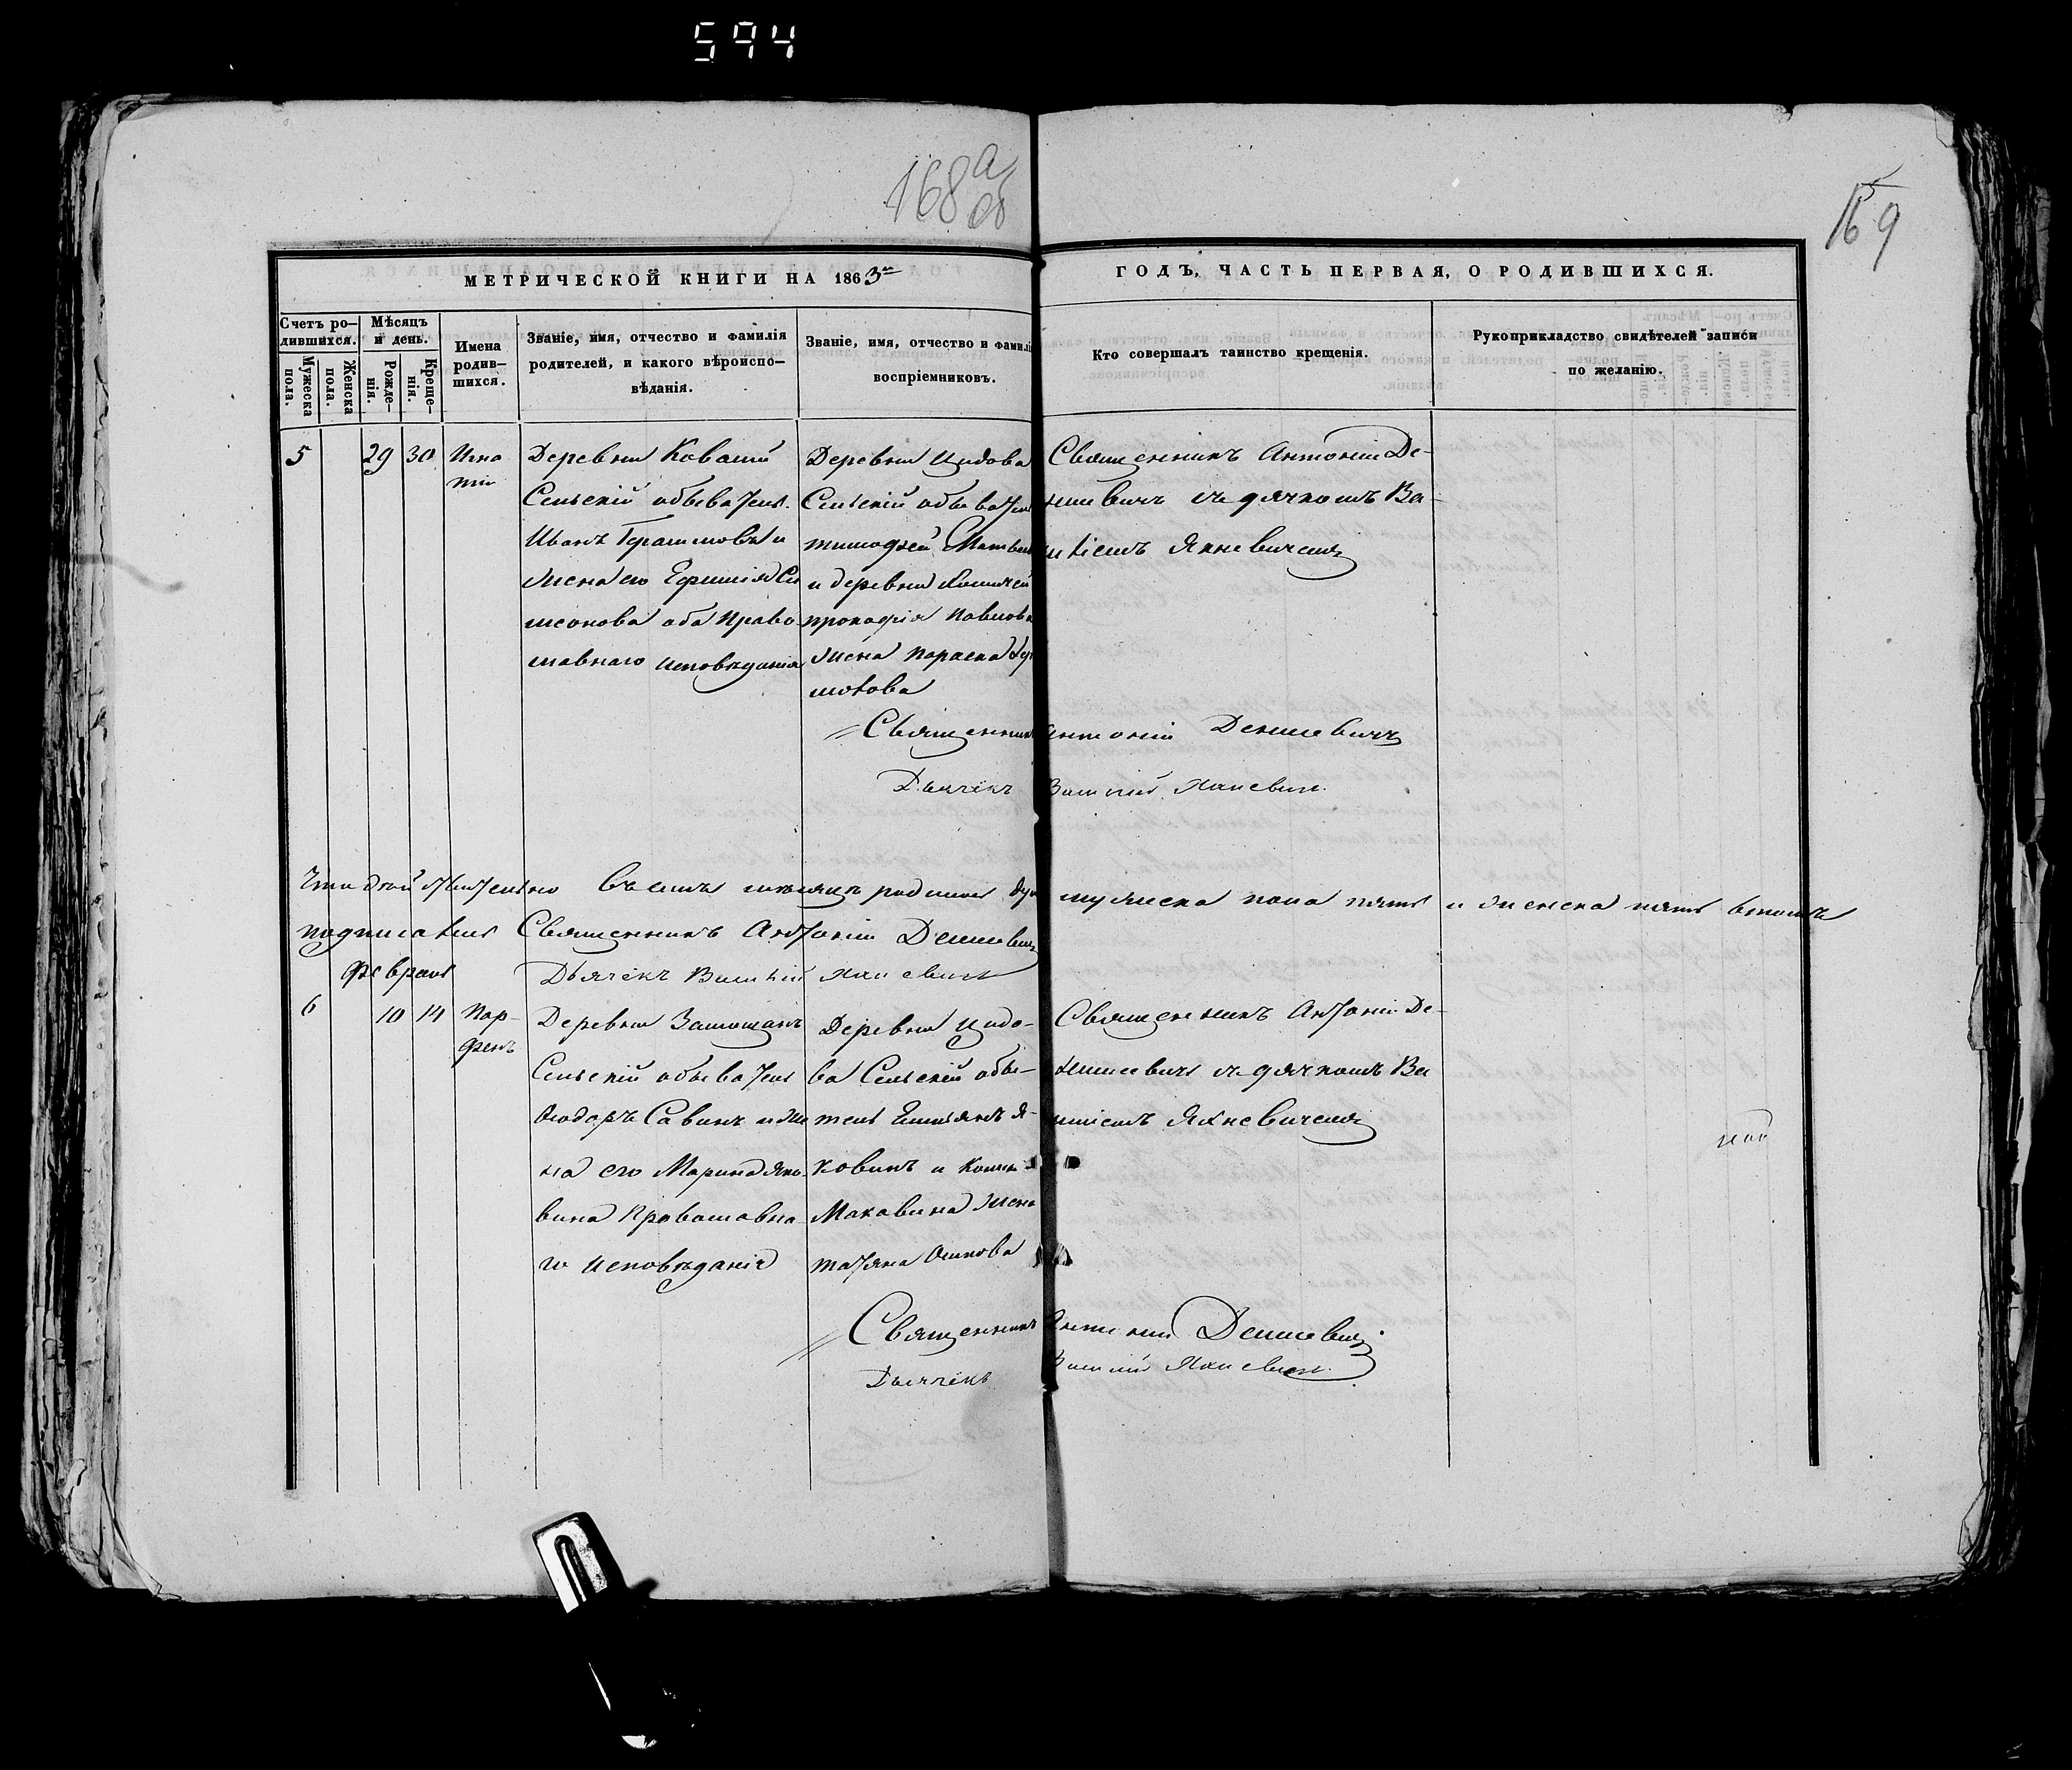 594
168 а об
169
МЕТРИЧЕСКОЙ КНИГИ НА 1863 ГОДЪ, ЧАСТЬ ПЕРВАЯ, О РОДИВШИХСЯ.
Счетъ ро-
дившихся.
Мужеска
пола.
Женска
пола.
Мѣсяцъ
и день.
Рожде-
нія.
Креще-
нія.
Имена
родив-
шихся.
Званіе, имя, отчество и фамилія
родителей, и какого вѣроиспо-
вѣданія.
Званіе, имя, отчество и фамилі
воспріемниковъ.
Кто совершалъ таинство крещенія.
Рукоприкладство свидѣтелей записи
по желанію.
5
29
30
Игна
тій
Деревни
Сельскій обыватель
Иванъ Герасимовъ и
жена его Ефимія Си
меонова оба Право
славнаго исповѣданія
Деревни Цидова
Сельскій обыватель
тимофей
и деревни
прокофія Павлова
жена параска
Священникъ Антоній Де-
нисевичъ съ дячкомъ Ва-
силіемъ Яхневичемъ
Священникъ Антоній Денисевичъ
Дьячекъ Василій Яхневичъ
Что действительно въ семъ мѣсяцѣ родилось мужеска пола пять и женска пять втомъ
подписались Священникъ Антоній Денисевичъ
Дьячекъ Василій Яхневичъ
Февраль
6
10
14
Пар-
фенъ
Деревни
Сельскій обыватель
Савинъ и же
на его Марина Яко-
вина Православна
го исповѣданія
Деревни Цидо-
ва Сельскій обы-
тель Емельянъ Я-
ковинъ и
жена
татяна
Священникъ Антоній Де-
нисевичъ съ дячкомъ Ва
силіемъ Яхневичемъ
Священникъ Антоній Денисевичъ
Дьячекъ Василій Яхневичъ